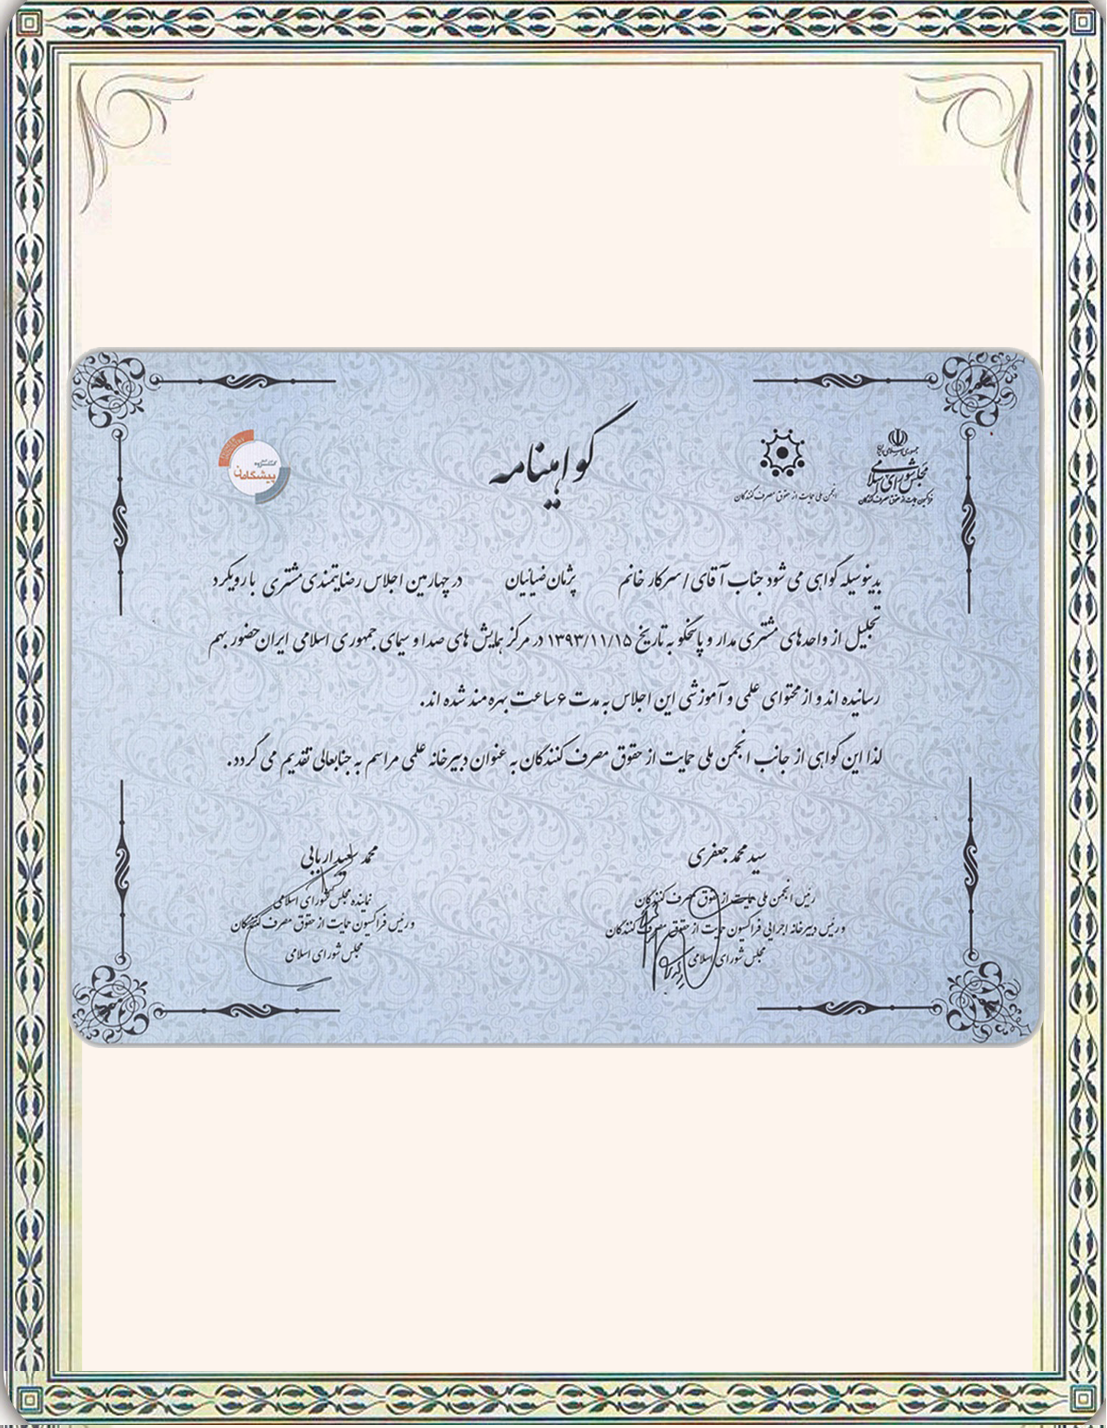 گواهینامه
جمهوری اسلامی ایران
مجلس شورای اسلامی
فراکسیون حمایت از حقوق مصرف کنندگان
انجمن ملی حمایت از حقوق مصرف کنندگان
پیشگامان
بدینوسیله گواهی می شود جناب آقای / سرکار خانم پژمان ضیائیان در چهارمین اجلاس رضایتمندی مشتری با رویکرد
تجلیل از واحدهای مشتری مدار و پاسخگو به تاریخ ۱۳۹۳/۱۱/۱۵ در مرکز همایش های صدا و سیمای جمهوری اسلامی ایران حضور بهم
رسانیده اند و از محتوای علمی و آموزشی این اجلاس به مدت ۶ ساعت بهره مند شده اند.
لذا این گواهی از جانب انجمن ملی حمایت از حقوق مصرف کنندگان به عنوان دبیرخانه علمی مراسم به جنابعالی تقدیم می گردد.
سید محمد جعفری
رئیس انجمن ملی حمایت از حقوق مصرف کنندگان
و رئیس دبیرخانه اجرایی فراکسیون حمایت از حقوق مصرف کنندگان
مجلس شورای اسلامی
محمد سعید اربابی
نماینده مجلس شورای اسلامی
و رئیس فراکسیون حمایت از حقوق مصرف کنندگان
مجلس شورای اسلامی